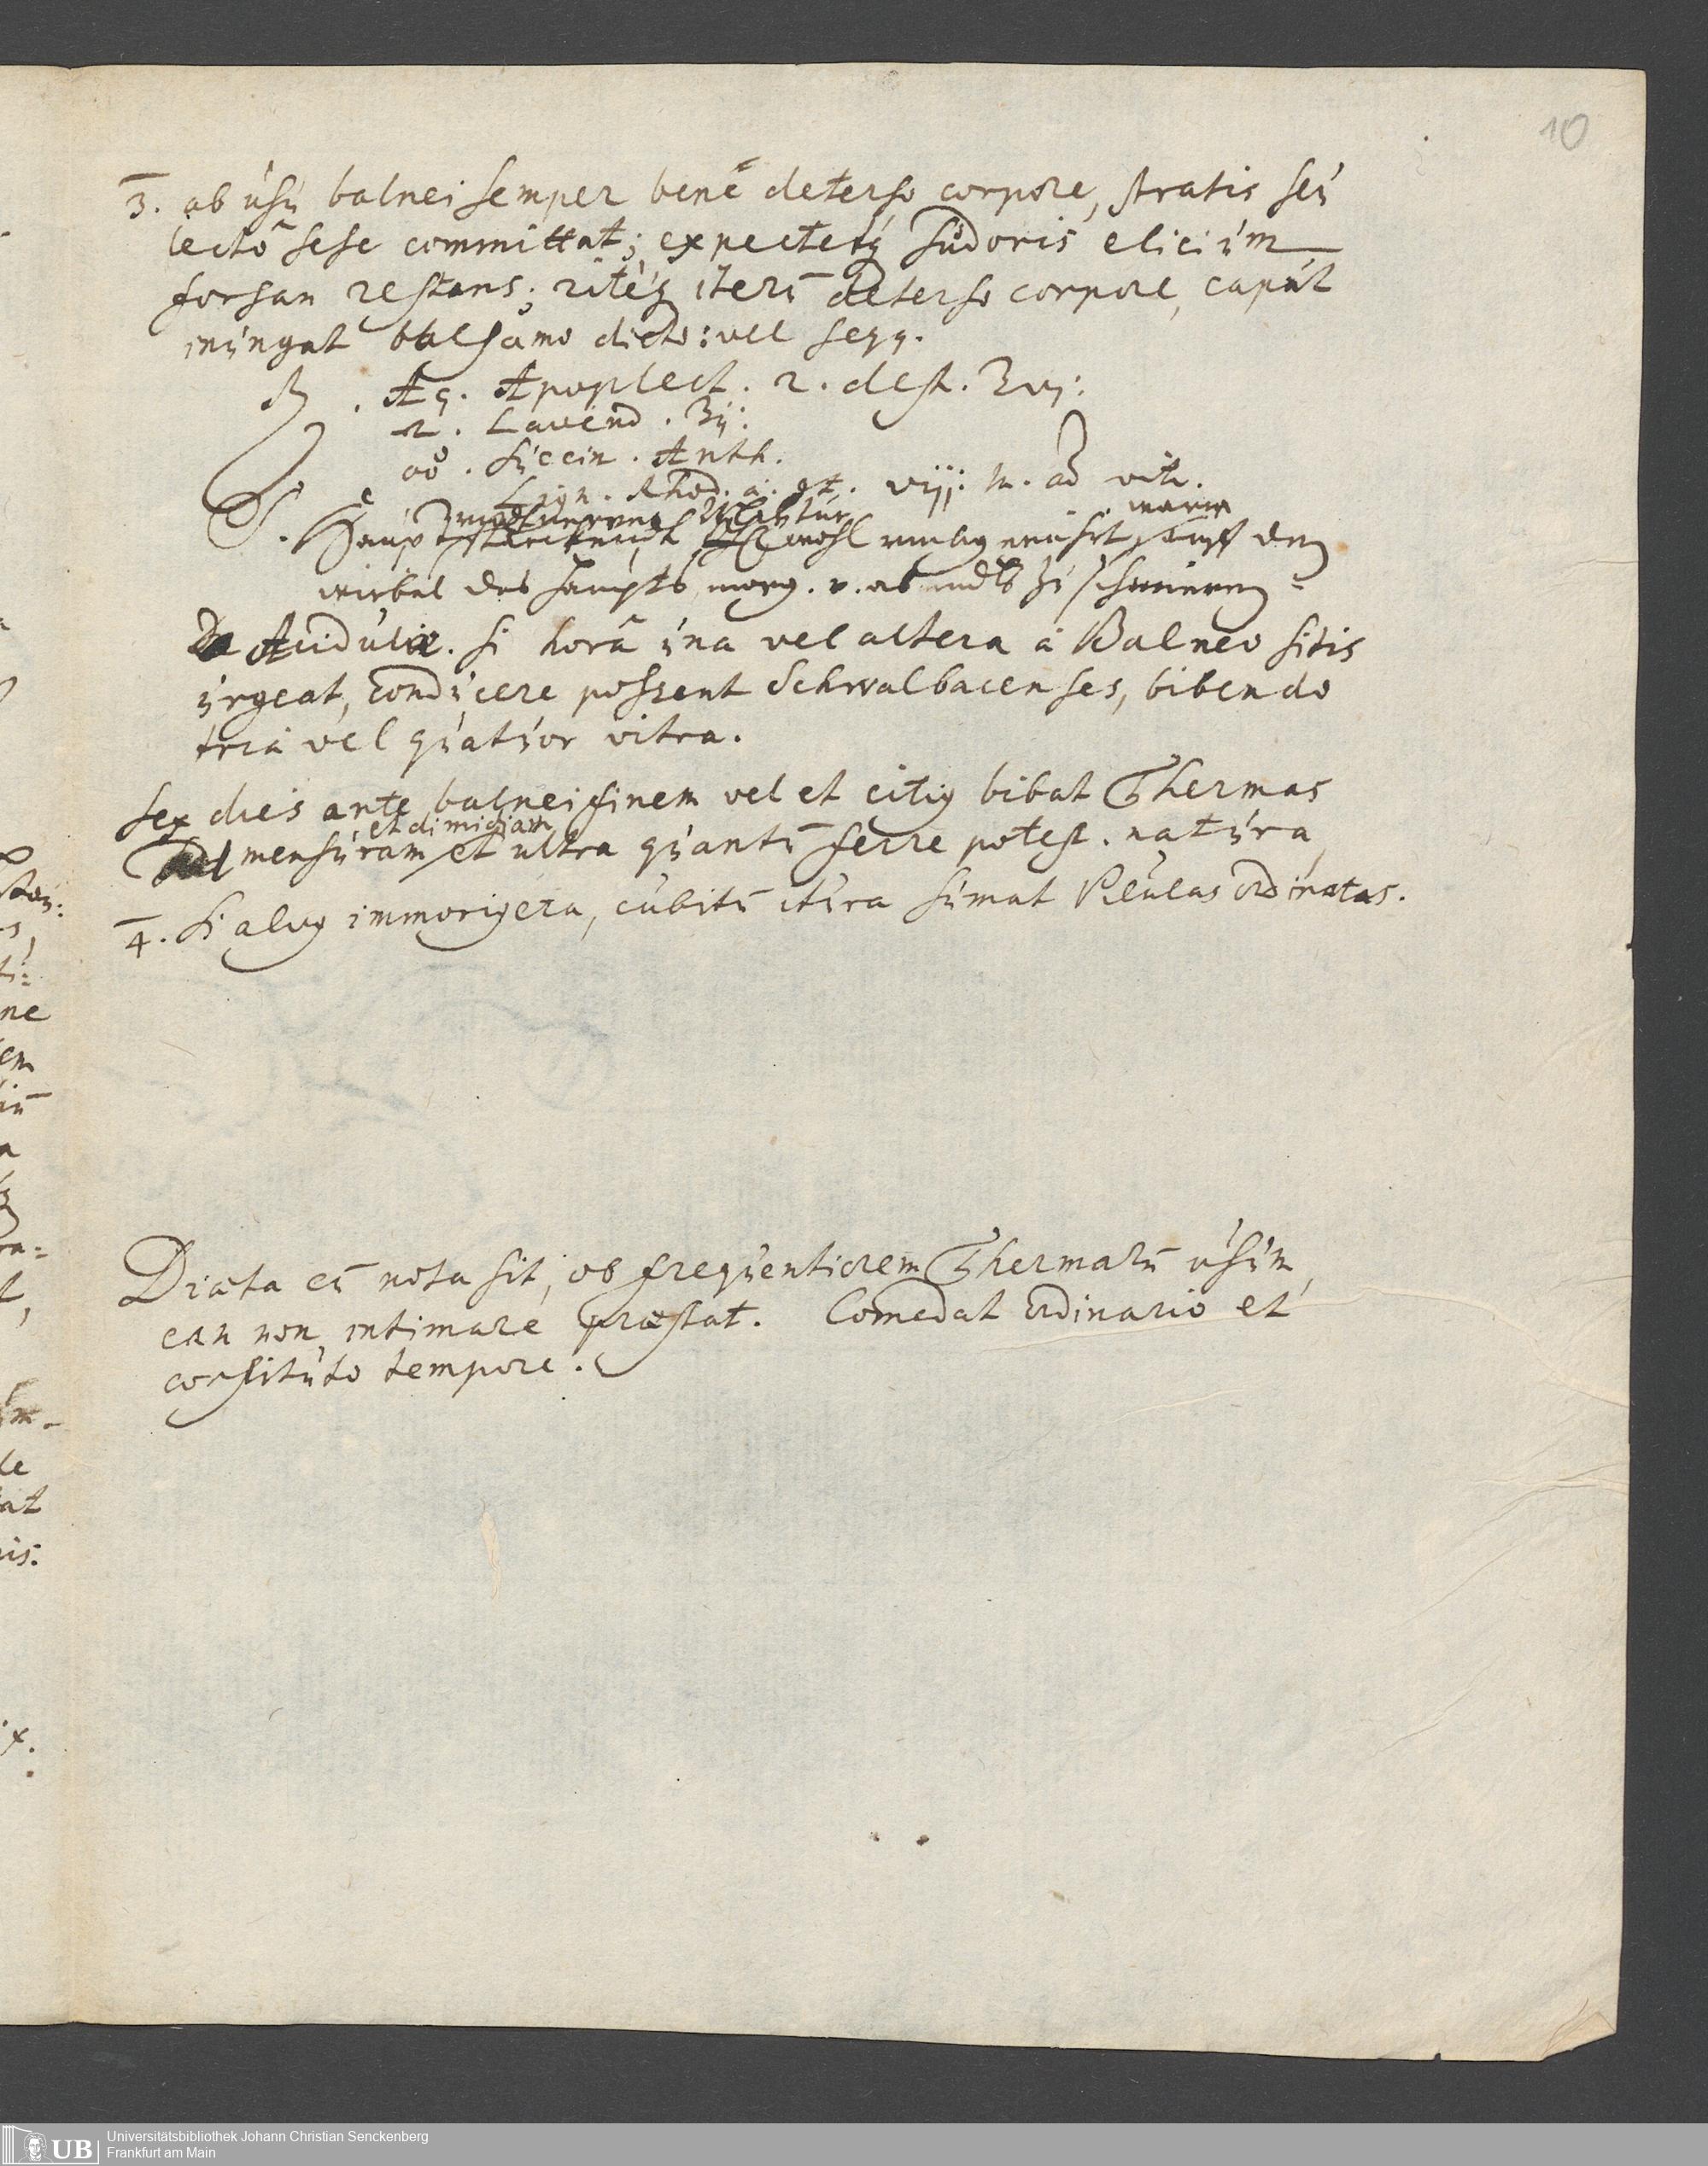 10
3. ab usu balnei semper benè deterso corpore, stratis seu
lectô sese committat; expectetq sudoris elicium
forsan restans; ritéq iterū deterso corpore, caput
inungat balsamo dicto: vel seqq.
℞. Aq. Apoplect. r. dest. ʒvj:
Lavend. ʒij:
Succin. Anth.
Lign. Rhod. a. gt. viij: m. ad vitr.
S. Haupt wohl umbgerührt warm auff den
wirbel des haupts, morg. v. abendts zu schmieren
De Acidulis. si horâ una vel altera à Balneo sitis
urgeat, conducere possent Schwalbacenses, bibendo
tria vel quatuor vitra.
Sex dies ante balnei finem vel et citiq bibat Thermas
et dimidiam
Ad mensuram et ultra quantū ferre potest natura,
4. Si alvq immorigera, cubitū itura sumat Pilulas ordinatas.
Diæta cū nota sit, ob frequentiorem Thermarū usum,
ean non intimare præstat. Comedat ordinario et
constituto tempore.
ne
em
a
le
at
is:
UB
Universitätsbibliothek Johann Christian Senckenberg
Frankfurt am Main